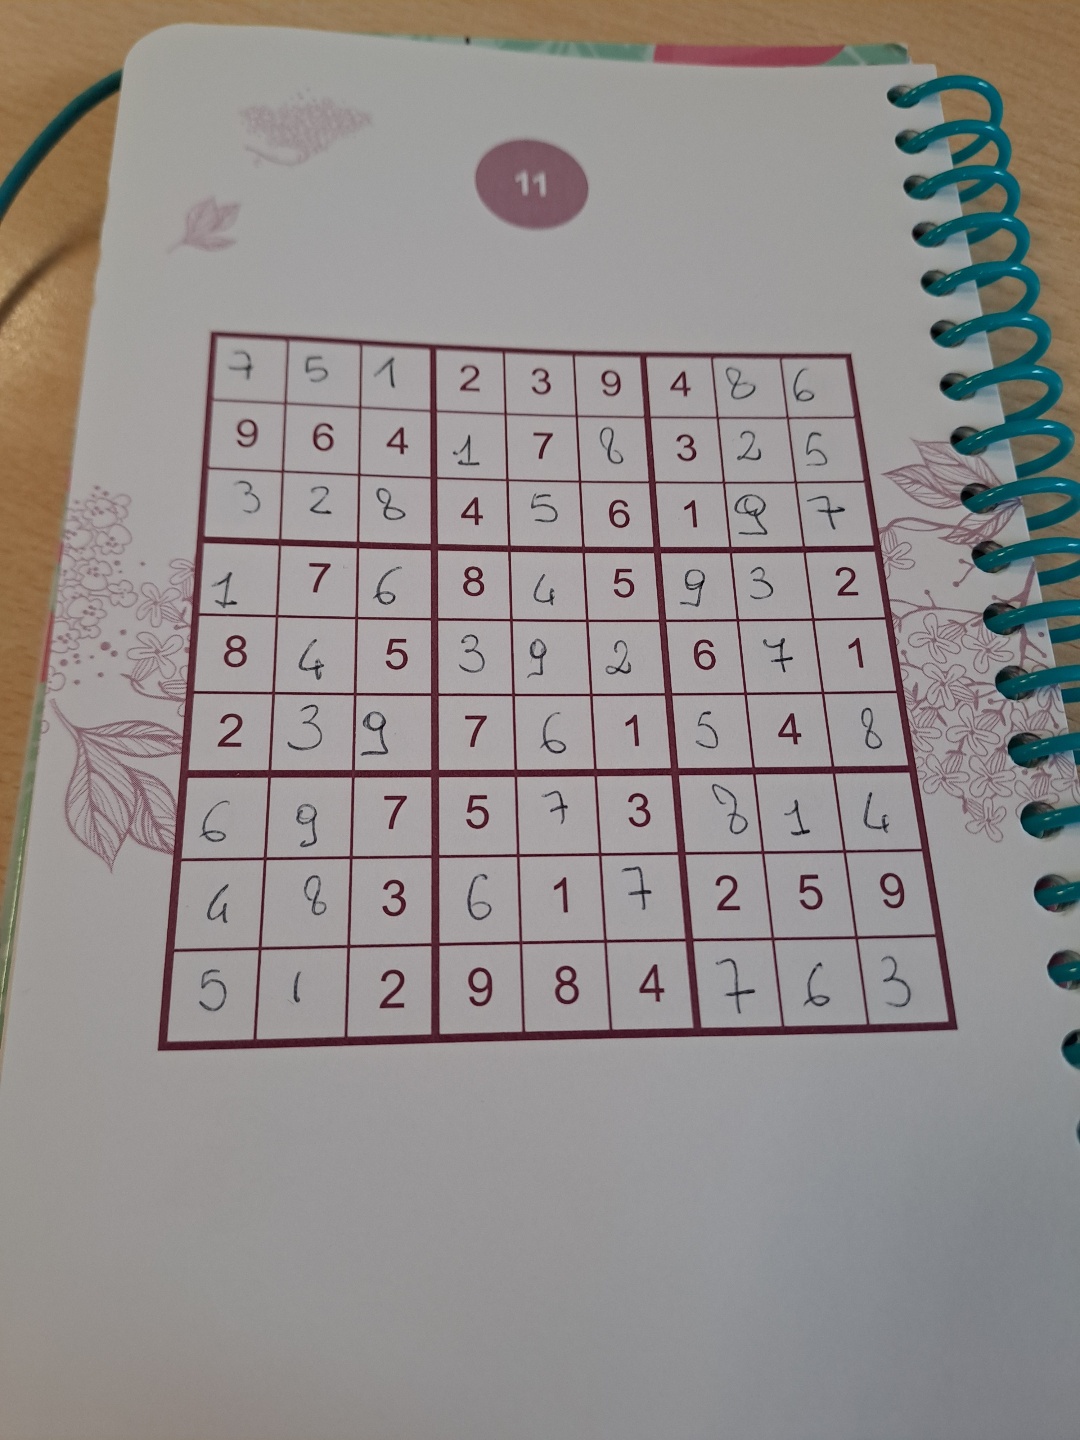 11
7 5 1 2 3 9 4 8 6
9 6 4 1 7 8 3 2 5
3 2 8 4 5 6 1 9 7
1 7 6 8 4 5 9 3 2
8 4 5 3 9 2 6 7 1
2 3 9 7 6 1 5 4 8
6 9 7 5 7 3 8 1 4
4 8 3 6 1 7 2 5 9
5 1 2 9 8 4 7 6 3